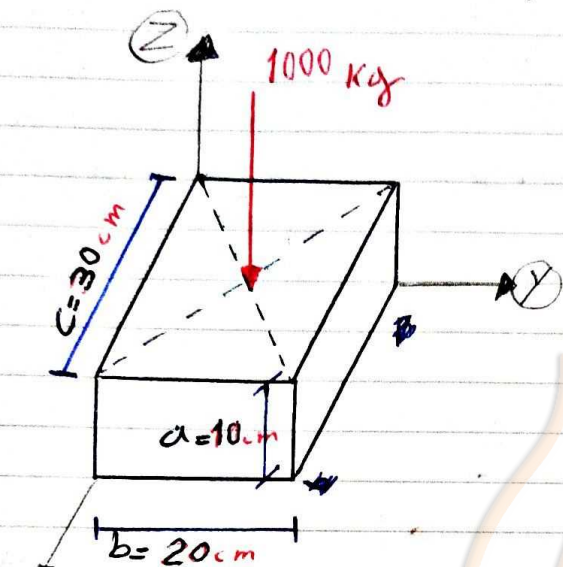 Z
1000 kg
C=30cm
Y
a=10cm
b=20cm